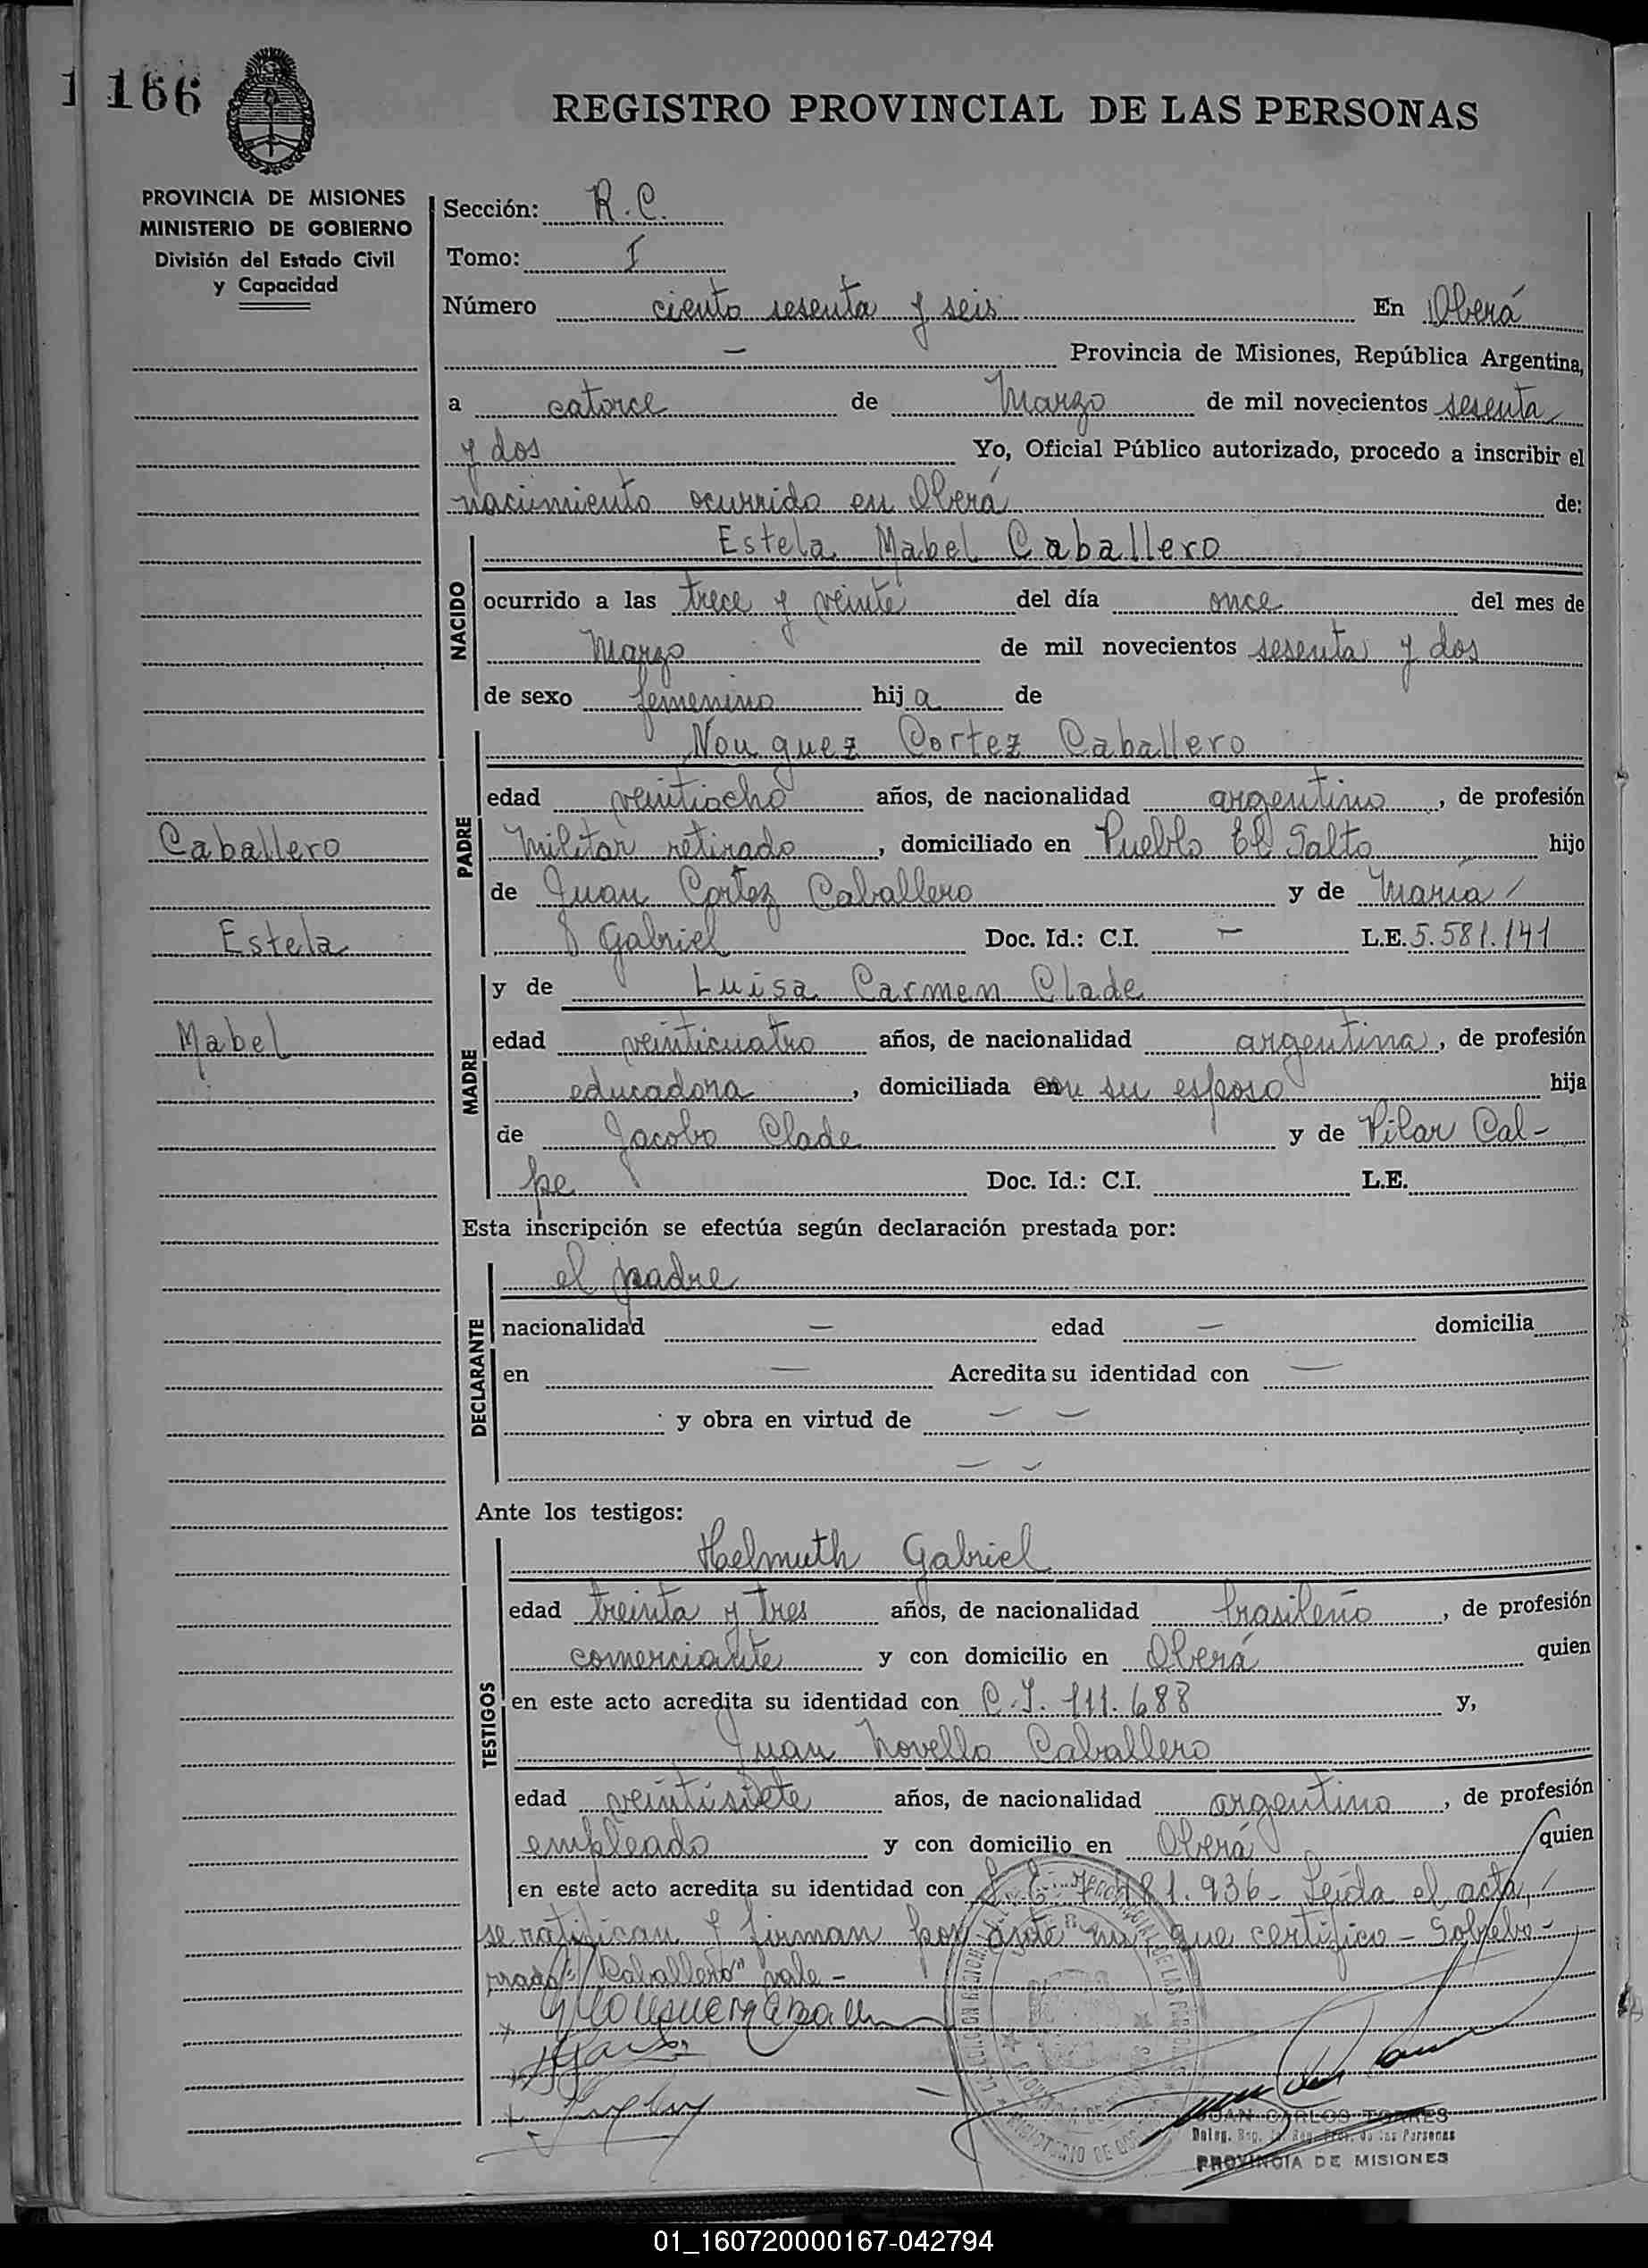 1 166
REGISTRO PROVINCIAL DE LAS PERSONAS
PROVINCIA DE MISIONES
MINISTERIO DE GOBIERNO
División del Estado Civil
y Capacidad
Caballero
Estela
Mabel
Sección: R.C.
Tomo: I
Número ciento sesenta y seis En Oberá
— Provincia de Misiones, República Argentina,
a catorce de Marzo de mil novecientos sesenta
y dos Yo, Oficial Público autorizado, procedo a inscribir el
nacimiento ocurrido en Oberá de:
Estela Mabel Caballero
NACIDO
ocurrido a las trece y veinte del día once del mes de
Marzo de mil novecientos sesenta y dos
de sexo femenino hija de
Nouguez Cortez Caballero
PADRE
edad veintiocho años, de nacionalidad argentino, de profesión
Militar retirado, domiciliado en Pueblo El Salto hijo
de Juan Cortez Caballero y de María
Gabriel Doc. Id.: C.I. — L.E. 5.581.141
y de Luisa Carmen Clade
MADRE
edad veinticuatro años, de nacionalidad argentina, de profesión
educadora, domiciliada con su esposo hija
de Jacobo Clade y de Pilar Cal-
pe Doc. Id.: C.I. L.E.
Esta inscripción se efectúa según declaración prestada por:
el padre
DECLARANTE
nacionalidad — edad — domicilia
en — Acredita su identidad con —
y obra en virtud de — —
— —
Ante los testigos:
Helmuth Gabriel
TESTIGOS
edad treinta y tres años, de nacionalidad brasileño, de profesión
comerciante y con domicilio en Oberá quien
en este acto acredita su identidad con C.I. 111.688 y,
Juan Novello Caballero
edad veintisiete años, de nacionalidad argentino, de profesión
empleado y con domicilio en Oberá quien
en este acto acredita su identidad con L.E. 81.936 - Leída el acta,
se ratifican y firman por ante mí que certifico - Sobrebo-
rrado: "Caballero" vale -
JUAN CARLOS TORRES
de las Personas
PROVINCIA DE MISIONES
01_160720000167-042794